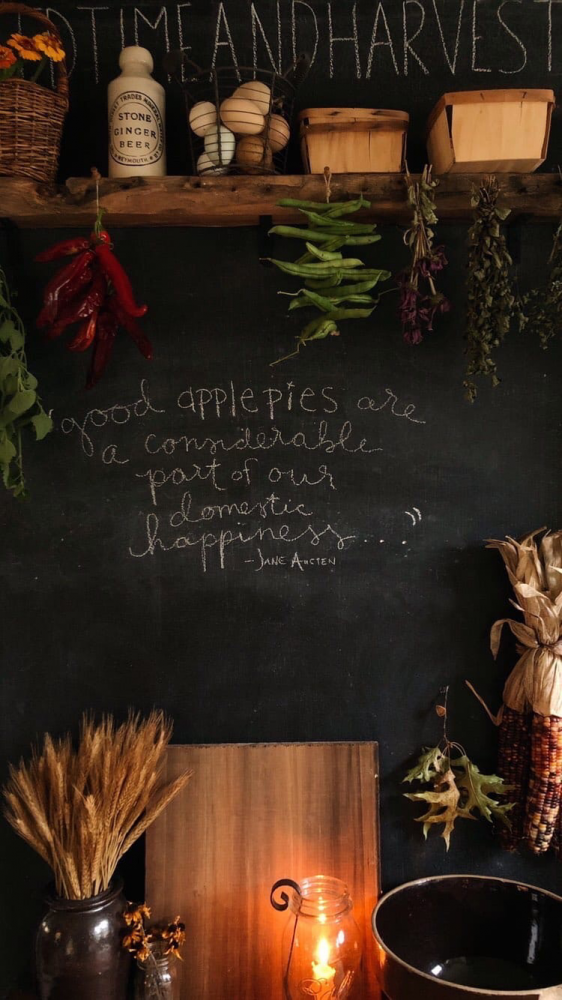 DTIMEANDHARVEST
TRADES MINERAL
STONE
GINGER
BEER
WEYMOUTH
good apple pies are
a considerable
part of our
domestic
happiness...
-JANE AUSTEN